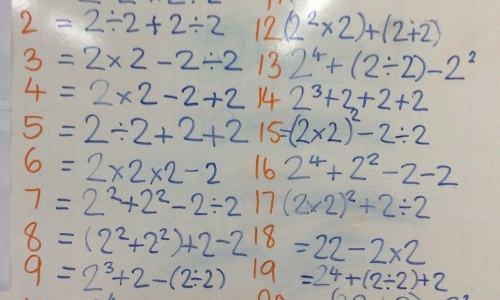 2 = 2÷2 + 2÷2
3 = 2×2 - 2÷2
4 = 2×2 - 2 + 2
5 = 2÷2 + 2 + 2
6 = 2×2×2 - 2
7 = 2²+2² - 2÷2
8 = (2²+2²)+2-2
9 = 2³+2-(2÷2)
12 (2²×2)+(2+2)
13 2⁴ + (2÷2) - 2²
14 2³+2+2+2
15=(2×2)² - 2÷2
16 2⁴ + 2² - 2 - 2
17 (2×2)² + 2÷2
18 = 22 - 2×2
19 = 2⁴+(2÷2)+2